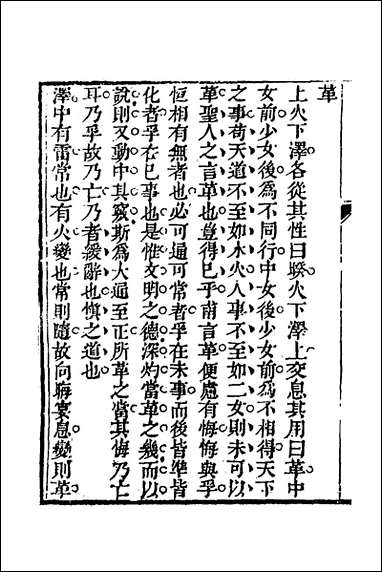 革
上火下澤各從其性曰睽火下澤上交息其用曰革中
女前少女後爲不同行中女後少女前爲不相得天下
之事苟天道不至如水火人事不至如二女則未可以
革聖人之言革也豈得已乎甫言革便處有悔悔與孚
恒相有無者也必可通可常者孚在未事而後皆準皆
化者孚在已事也是惟文明之德深灼當革之幾而以
說則又動中其竅斯爲大通至正所革之當其悔乃亡
耳乃孚故乃亡乃者緩辭也慎之道也
澤中有雷常也有火變也常則隨故向晦宴息變則革